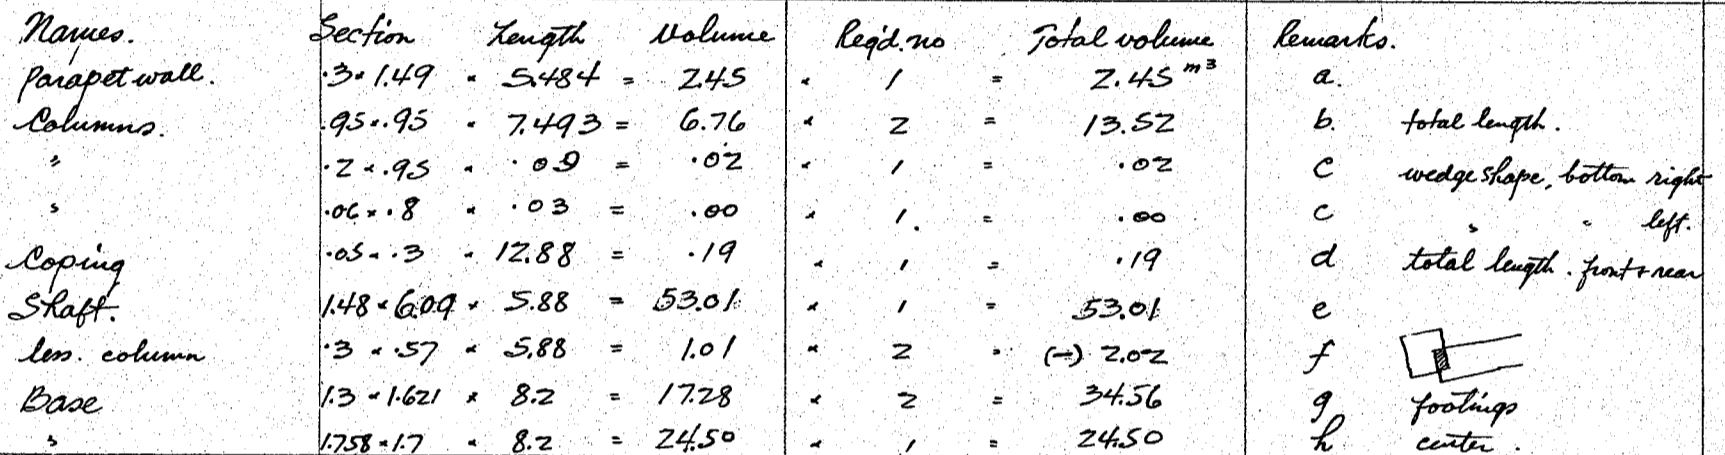 Names. Section Length Volume Req'd. no Total volume Remarks.
Parapet wall. .3 × 1.49 × 5.484 = 2.45 × 1 = 2.45 m³ a.
Columns. .95 × .95 × 7.493 = 6.76 × 2 = 13.52 b. total length.
" .2 × .95 × .09 = .02 × 1 = .02 c wedge shape, bottom right
" .06 × .8 × .03 = .00 × 1. = .00 c " " left.
Coping .05 × .3 × 12.88 = .19 × 1 = .19 d total length. front + rear
Shaft. 1.48 × 6.09 × 5.88 = 53.01 × 1 = 53.01 e
less. column .3 × .57 × 5.88 = 1.01 × 2 = (-) 2.02 f
Base 1.3 × 1.621 × 8.2 = 17.28 × 2 = 34.56 g footings
" 1.758 × 1.7 × 8.2 = 24.50 × 1 = 24.50 h center.